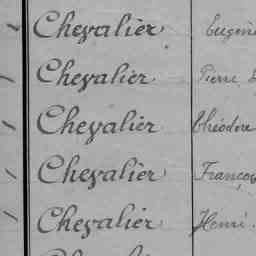 Chevalier Eugène
Chevalier Pierre
Chevalier Théodore
Chevalier François
Chevalier Henri